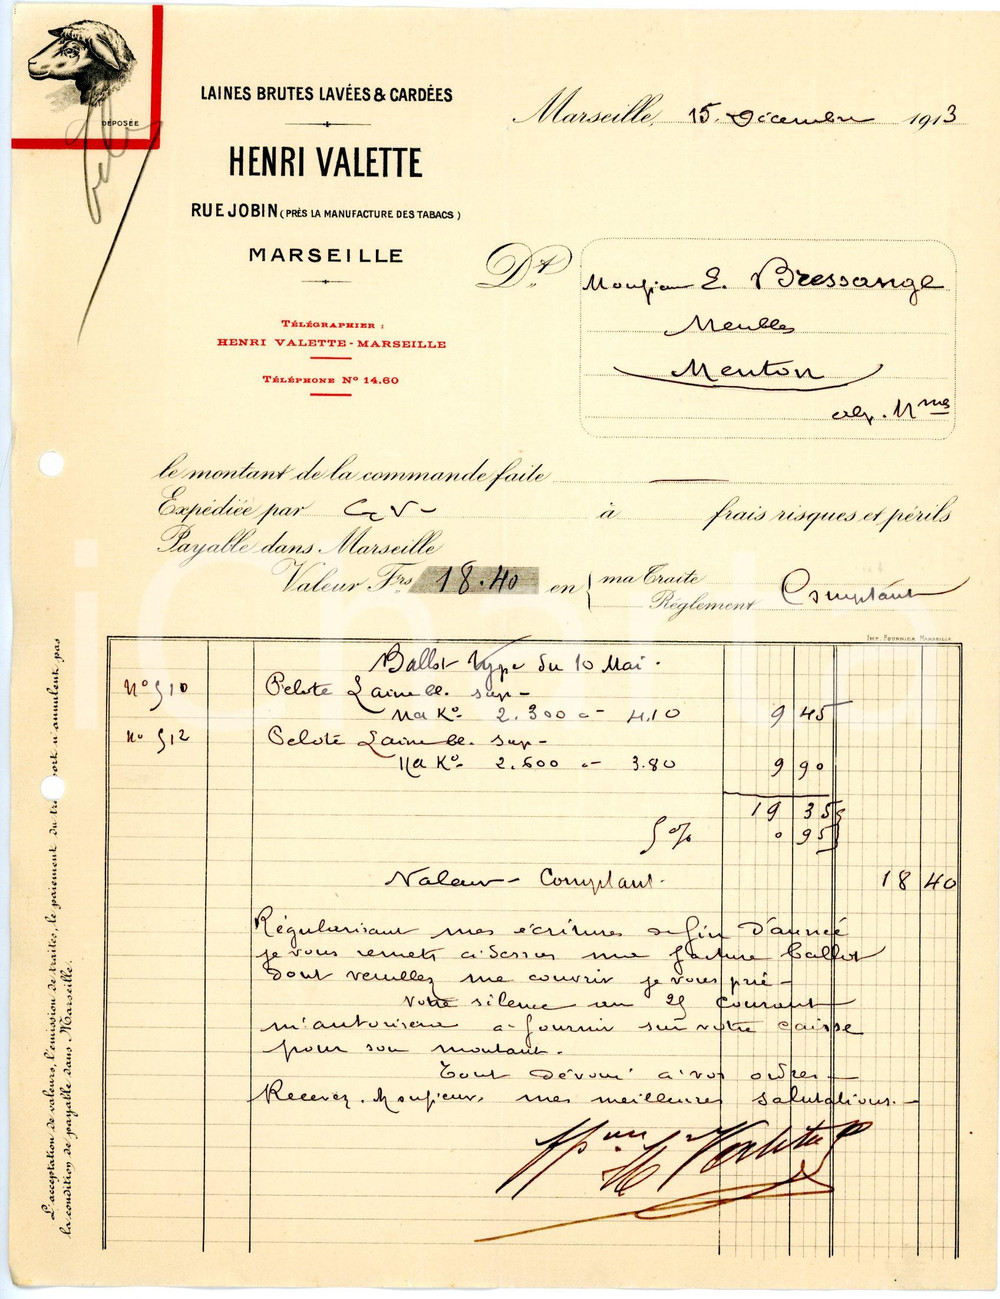 DÉPOSÉE
LAINES BRUTES LAVÉES & CARDÉES
HENRI VALETTE
RUE JOBIN (PRÈS LA MANUFACTURE DES TABACS)
MARSEILLE
TÉLÉGRAPHIER :
HENRI VALETTE-MARSEILLE
TÉLÉPHONE N° 14.60
Marseille, 15 Décembre 1913
Dt
Monsieur E. Bressange
Meubles
Menton
alp. Mmes
le montant de la commande faite
Expédiée par G V- à frais risques et périls
Payable dans Marseille
Valeur Frs 18.40 en { ma Traite
Règlement Comptant
IMP. FOURNIER MARSEILLE
Ballot type du 10 Mai.
N° 510 Pelote Laine bl. sup-
Na K° 2.300 a- 4.10 9 45
N° 512 Pelote Laine bl. sup-
Na K° 2.600 a- 3.80 9 90
19 35
5% 0 95
Valeur- Comptant. 18 40
Régularisant mes écritures de fin d'année
je vous remets ci-dessus ma facture ballot
dont veuillez me couvrir je vous prie-
Votre silence au 25 courant
m'autorisera à fournir sur votre caisse
pour son montant.
Tout dévoué à vos ordres-
Recevez, Monsieur, mes meilleures salutations.-
H Valette
L'acceptation de valeurs, l'émission de traites, le paiement du transport n'annulent pas
la condition de payable dans Marseille.